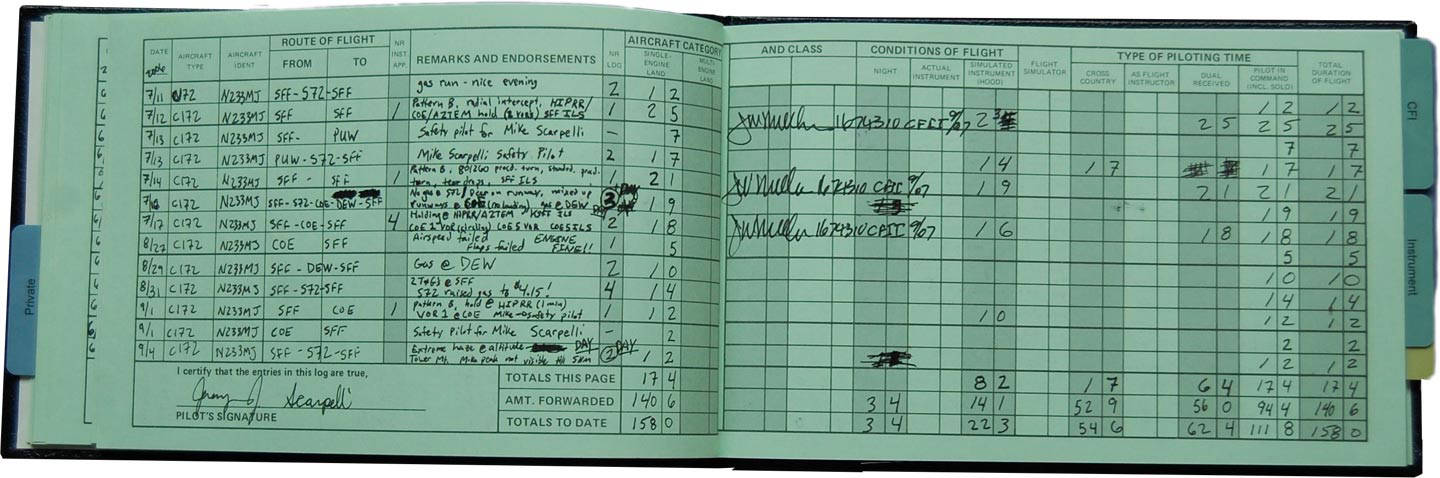 DATE 2006 AIRCRAFT TYPE AIRCRAFT IDENT ROUTE OF FLIGHT FROM TO NR INST APP. REMARKS AND ENDORSEMENTS NR LDG AIRCRAFT CATEGORY SINGLE-ENGINE LAND MULTI-ENGINE LAND AND CLASS CONDITIONS OF FLIGHT NIGHT ACTUAL INSTRUMENT SIMULATED INSTRUMENT (HOOD) FLIGHT SIMULATOR TYPE OF PILOTING TIME CROSS COUNTRY AS FLIGHT INSTRUCTOR DUAL RECEIVED PILOT IN COMMAND (INCL. SOLO) TOTAL DURATION OF FLIGHT
7/11 C172 N233MJ SFF-S72-SFF gas run - nice evening 2 1 2 1 2 1 2
7/12 C172 N233MJ SFF SFF 1 Pattern B, radial intercept, HIPRR/
COE/AZTEM hold SFF ILS 1 2 5 1674310 CFII 9/07 2 5 2 5 2 5
7/13 C172 N233MJ SFF- PUW Safety pilot for Mike Scarpelli - 7 7 7
7/13 C172 N233MJ PUW-S72-SFF Mike Scarpelli Safety Pilot 2 1 7 1 4 1 7 1 7 1 7
7/14 C172 N233MJ SFF - SFF 1 Pattern B, 80/260 proced. turn, standard proced.
turn, tear drops, SFF ILS 1 2 1 1674310 CFII 9/07 1 9 2 1 2 1 2 1
C172 N233MJ SFF-S72-COE-DEW-SFF No gas @ S72/Deer on runway, mixed up
runways @ gas @ DEW 3 DAY 1 9 1 9 1 9
7/17 C172 N233MJ SFF-COE-SFF 4 Holding @ HIPRR/AZTEM SFF ILS
COE 2 VOR COE 5 VOR COE 5 ILS 2 1 8 1674310 CFII 9/07 1 6 1 8 1 8 1 8
8/27 C172 N233MJ COE SFF Airspeed failed ENGINE
Flaps failed FINE!! 1 5 5 5
8/29 C172 N233MJ SFF - DEW-SFF Gas @ DEW 2 1 0 1 0 1 0
8/31 C172 N233MJ SFF-S72-SFF 2 T+Gs @ SFF
S72 raised gas to $4.15! 4 1 4 1 4 1 4
9/1 C172 N233MJ SFF COE 1 Pattern B, hold @ HIPRR (1 min)
VOR 1 @ COE Mike safety pilot 1 1 2 1 0 1 2 1 2
9/1 C172 N233MJ COE SFF Safety Pilot for Mike Scarpelli - 2 2 2
9/4 C172 N233MJ SFF-S72-SFF Extreme haze @ altitude DAY
Tower Mt. Mica peak not visible till 5km 2 DAY 1 2 1 2 1 2
I certify that the entries in this log are true,
Scarpelli
PILOT'S SIGNATURE
TOTALS THIS PAGE 17 4 8 2 1 7 6 4 17 4 17 4
AMT. FORWARDED 140 6 3 4 14 1 52 9 56 0 94 4 140 6
TOTALS TO DATE 158 0 3 4 22 3 54 6 62 4 111 8 158 0
Private
CFI
Instrument